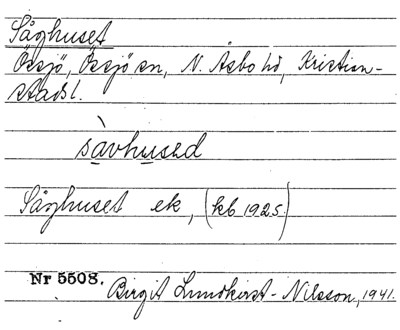 Såghuset
Össjö, Össjö sn, N. Åsbo hd, Kristian-
stads l.
sàvhused
Såghuset ek, (kb 1925.)
Nr 5508. Birgit Lundkvist-Nilsson, 1941.